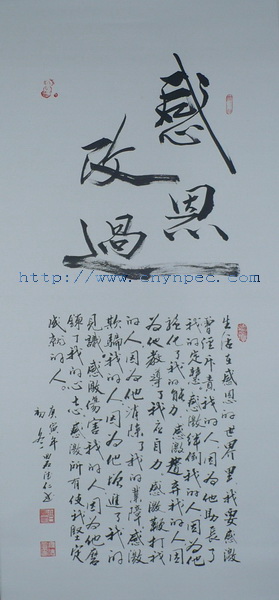 感恩
改過
http://www.cnyhpec.com
生活在感恩的世界里我要感激
曾经斥责我的人因为他助长了
我的定慧感激绊倒我的人因为他
强化了我的能力感激遗弃我的人因
为他教导了我应自力感激鞭打我
的人因为他消除了我的業障感激
欺騙我的人因为他增進了我的
見識感激傷害我的人因为他磨
了我的心志感激所有使我坚定
成就的人。
庚寅年
初冬